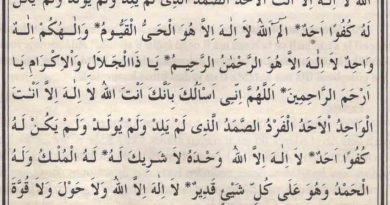 اللهُ لَا اِلٰهَ اِلَّا اَنْتَ الْاَحَدُ الصَّمَدُ الَّذٖى لَمْ يَلِدْ وَلَمْ يُولَدْ وَلَمْ يَكُنْ
لَهُ كُفُوًا اَحَدٌ* الٓمٓ اَللهُ لَا اِلٰهَ اِلَّا هُوَ الْحَىُّ الْقَيُّومُ* وَاِلٰهُكُمْ اِلٰهٌ
وَاحِدٌ لَا اِلٰهَ اِلَّا هُوَ الرَّحْمٰنُ الرَّحٖيمُ* يَا ذَاالْجَلَالِ وَالْاِكْرَامِ يَا
اَرْحَمَ الرَّاحِمٖينَ* اَللّٰهُمَّ اِنّٖى اَسْاَلُكَ بِاَنَّكَ اَنْتَ اللهُ لَا اِلٰهَ اِلَّا اَنْتَ
الْوَاحِدُ الْاَحَدُ الْفَرْدُ الصَّمَدُ الَّذٖى لَمْ يَلِدْ وَلَمْ يُولَدْ وَلَمْ يَكُنْ لَهُ
كُفُوًا اَحَدٌ* لَا اِلٰهَ اِلَّا اللهُ وَحْدَهُ لَا شَرٖيكَ لَهُ* لَهُ الْمُلْكُ وَلَهُ
الْحَمْدُ وَهُوَ عَلٰى كُلِّ شَيْئٍ قَدٖيرٌ* لَا اِلٰهَ اِلَّا اللهُ وَلَا حَوْلَ وَلَا قُوَّةَ